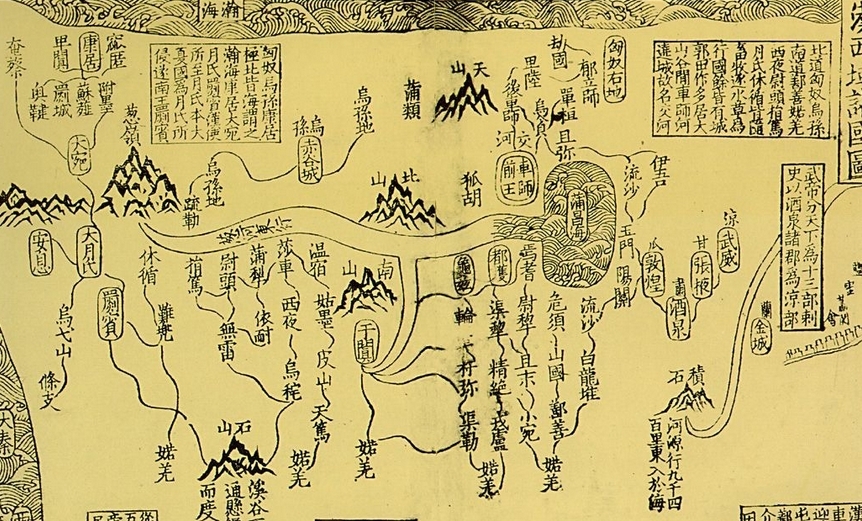 瀚海
漢西域諸國圖
北道匈奴烏孫
南道鄯善婼羌
西夜尉頭捐篤
月氏休循皆隨
畜逐水草為
行國餘皆有城
郭田作多居大
山谷間車師河
遶城故名交河
武帝分天下為十三部刺
史以酒泉諸郡為涼部
匈奴右地
郁立師
劫國
單桓
且彌
卑陸
烏貪
後車師
交河
車師前王
天山
蒲類
狐胡
蒲昌海
伊吾
流沙
玉門
陽關
瓜 敦煌
肅 酒泉
甘 張掖
涼 武威
蘭 金城
積石
河源行九千四
百里東入於海
匈奴烏孫康居
極北皆海謂之
瀚海康居大宛
月氏罽賓條便
所至月氏本大
夏國為月氏所
侵遂南王罽賓
烏孫地
烏孫
赤谷城
烏孫地
北山
窳匿
康居
卑闐
奄蔡
附墨
蘇薤
罽城
奧鞬
大宛
蔥嶺
疏勒
大月氏
安息
罽賓
烏弋山
條支
休循
難兜
婼羌
捐篤
尉頭
無雷
蒲犂
依耐
莎車
西夜
烏秅
溫宿
姑墨
皮山
天篤
婼羌
南山
于闐
婼羌
龜茲
輪
扜彌
渠勒
婼羌
都護
渠犂
精絕
戎盧
焉耆
尉犂
且末
小宛
危須
山國
鄯善
婼羌
流沙
白龍堆
石山
溪谷
通縣
而度
大秦